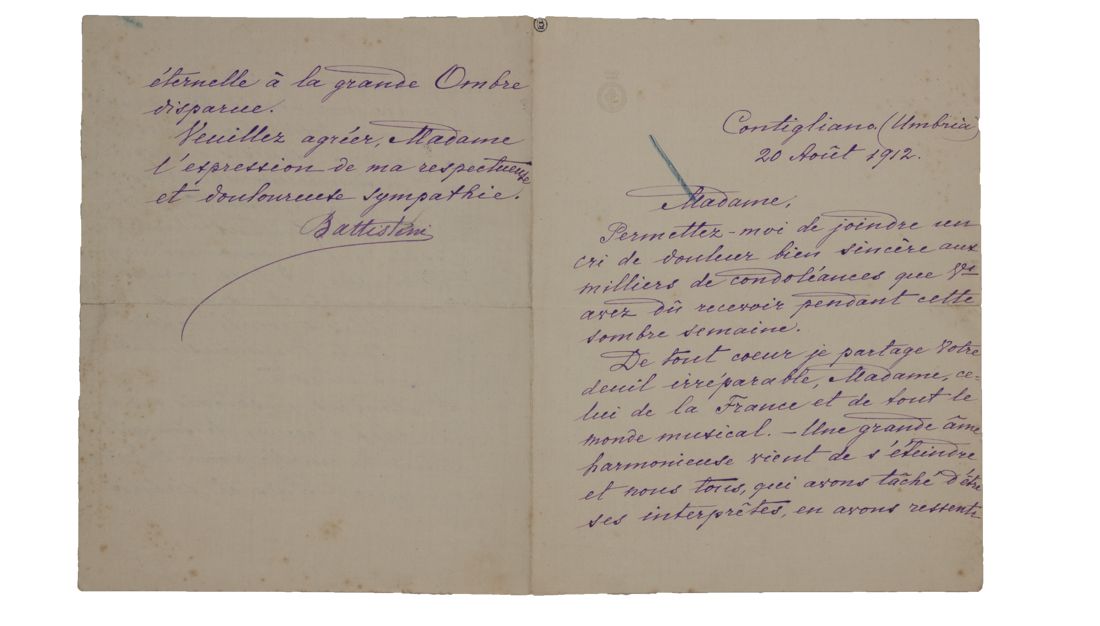 Contigliano. (Umbria)
20 Août 1912.
Madame,
Permettez-moi de joindre un
cri de douleur bien sincère aux
milliers de condoléances que Vs
avez dû recevoir pendant cette
sombre semaine.
De tout coeur je partage Votre
deuil irréparable, Madame, ce-
lui de la France et de tout le
monde musical. – Une grande âme
harmonieuse vient de s'éteindre
et nous tous, qui avons tâché d'être
ses interprêtes, en avons ressenti
éternelle à la grande Ombre
disparue.
Veuillez agréer, Madame
l'espression de ma respectueuse
et douloureuse sympathie.
Battistini